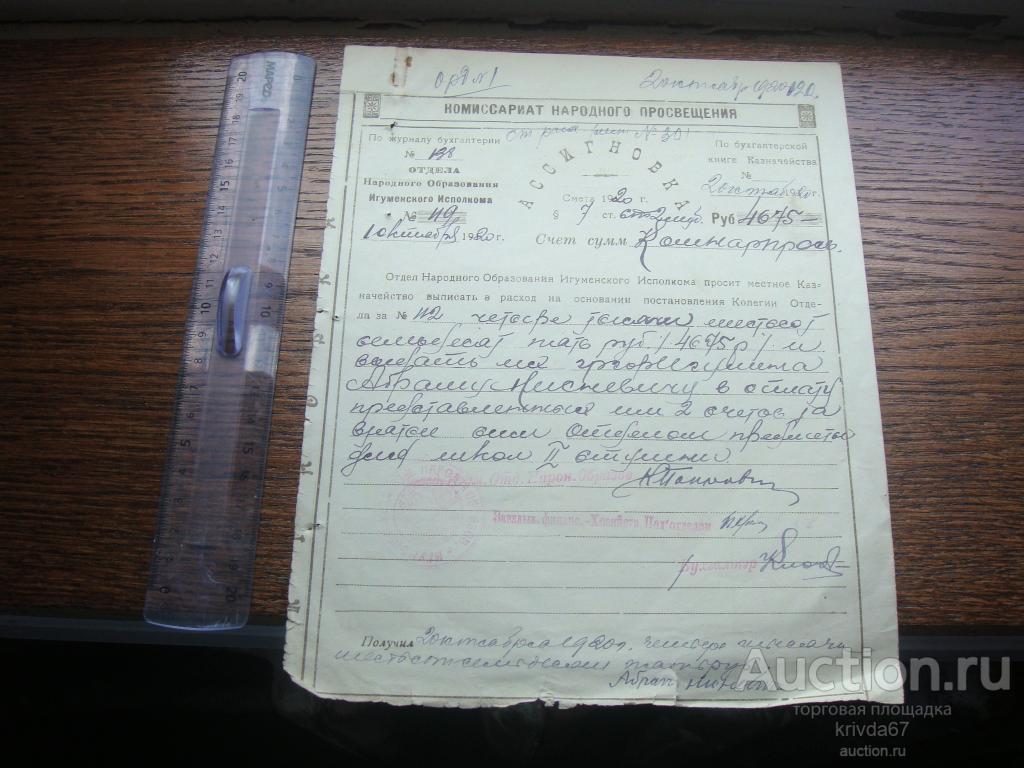 орд №1 2 октябр 1920
КОМИССАРИАТ НАРОДНОГО ПРОСВЕЩЕНИЯ
По журналу бухгалтерии
№ 138
ОТДЕЛА
Народного Образования
Игуменского Исполкома
№ 119
1 октября 1920 г.
№ 30
АССИГНОВКА
Смета 1920 г.
§ 7 ст.
Счет сумм Комнарпрось.
По бухгалтерской
книге Казначейства
№
2 октяб 1920 г.
Руб 4675=
Отдел Народного Образования Игуменского Исполкома просит местное Каз-
начейство выписать в расход на основании постановления Колегии Отде-
ла за № 112 четыре тысячи шестьсот
семьдесят пять руб. /4675 р/. и
выдать гр. Игумена
Абраму в оплату
представленных им 2 счетов за
взятые сим Отделом предметы
для школ II ступени.
Отд. Народн. Образов
Заведыв. финанс.-Хозяйств. Под'отделом
Бухгалтер
Получил 2 октября 1920 г. четыре тысячи
шестьсот семьдесят пять руб
Абрам
МАРОС
Auction.ru
торговая площадка
krivda67
auction.ru